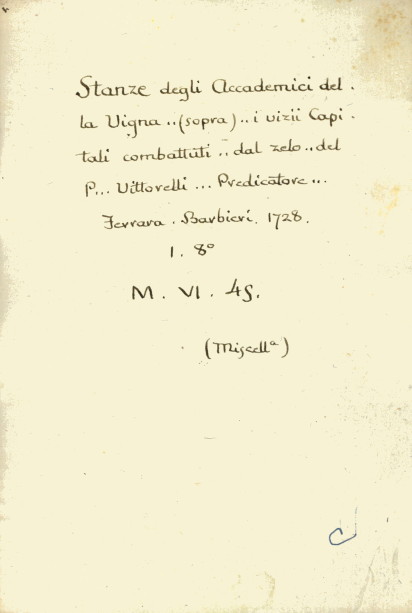 Stanze degli Accademici del.
la Vigna .. (sopra) .. i vizii Capi.
tali combattuti .. dal zelo .. del
P... Vittorelli ... Predicatore ...
Ferrara. Barbieri. 1728.
1. 8º
M. VI. 45.
(Miscellª)
C